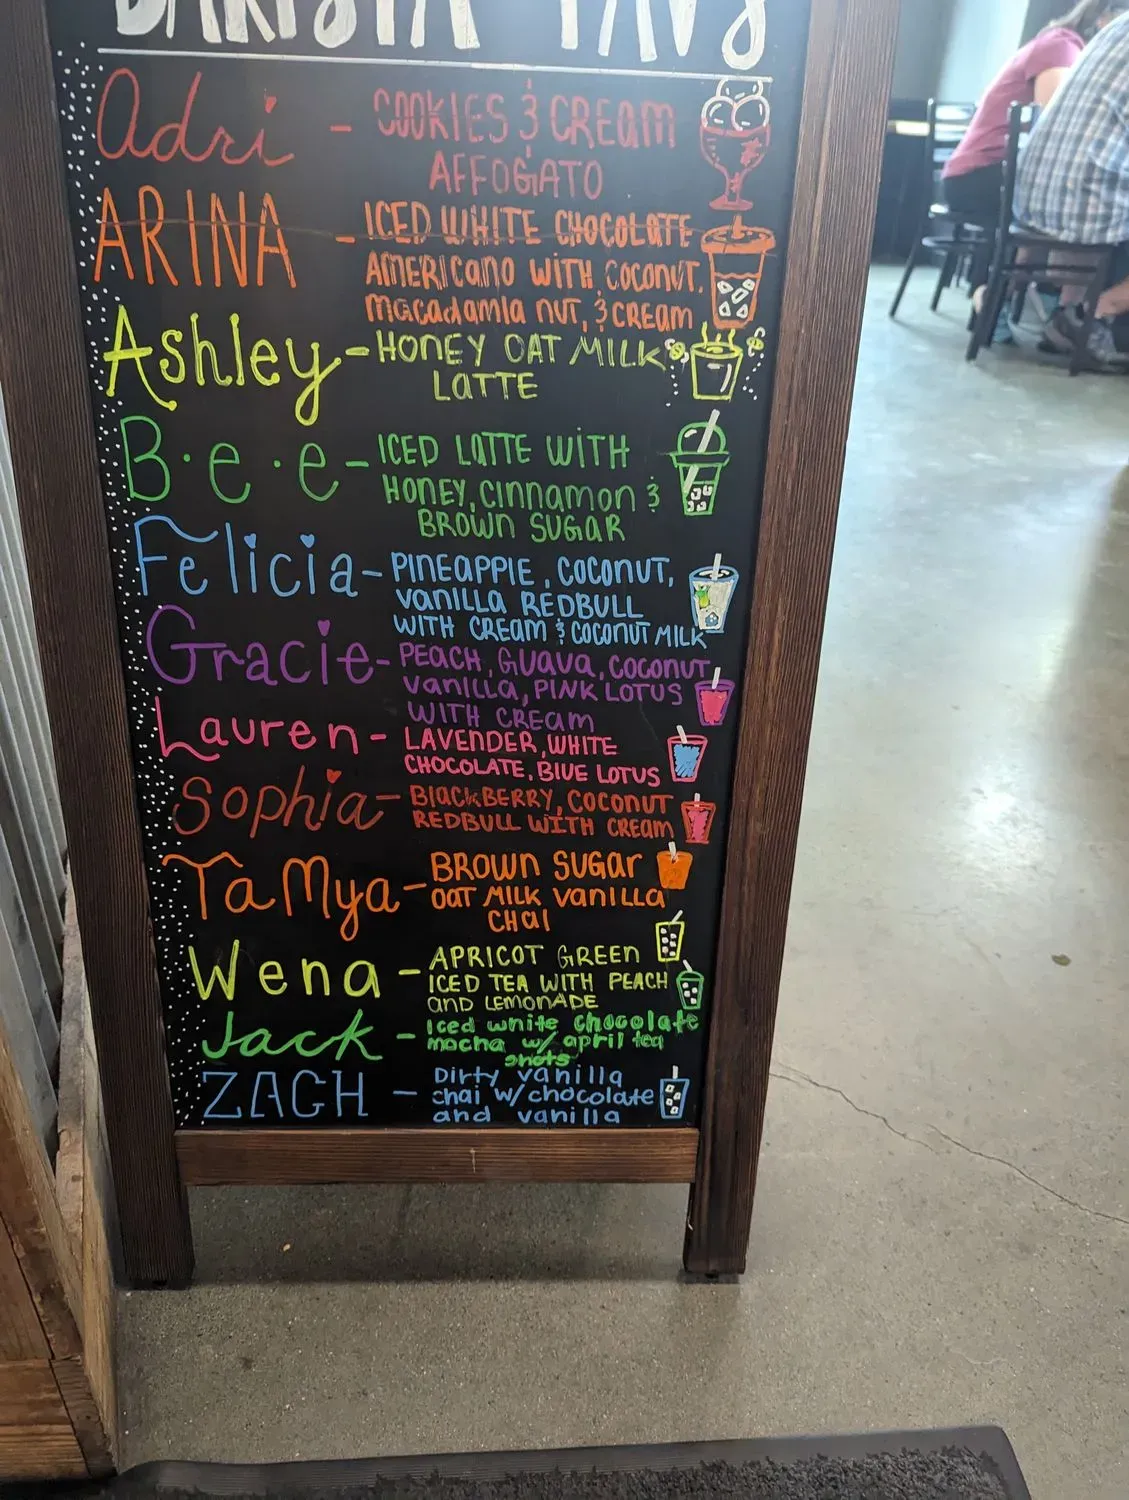 BARISTA FAVS
Adri - COOKIES & CREAM
AFFOGATO
ARINA - ICED WHITE CHOCOLATE
AMERICANO WITH COCONUT,
macadamia nut, & CREAM
Ashley - HONEY OAT MILK
LATTE
B.e.e - ICED LATTE WITH
HONEY, cinnamon &
BROWN SUGAR
Felicia - PINEAPPLE, COCONUT,
vanilla REDBULL
WITH CREAM & COCONUT MILK
Gracie - PEACH, GUAVA, COCONUT
vanilla, PINK LOTUS
WITH CREAM
Lauren - LAVENDER, WHITE
CHOCOLATE, BLUE LOTUS
Sophia - BlackBERRY, COCONUT
REDBULL WITH CREAM
TaMya - BROWN SUGAR
OAT MILK vanilla
CHai
Wena - APRICOT GREEN
ICED TEA WITH PEACH
and LEMONADE
Jack - Iced white chocolate
mocha w/ april tea
shots
ZACH - Dirty vanilla
chai w/ chocolate
and vanilla